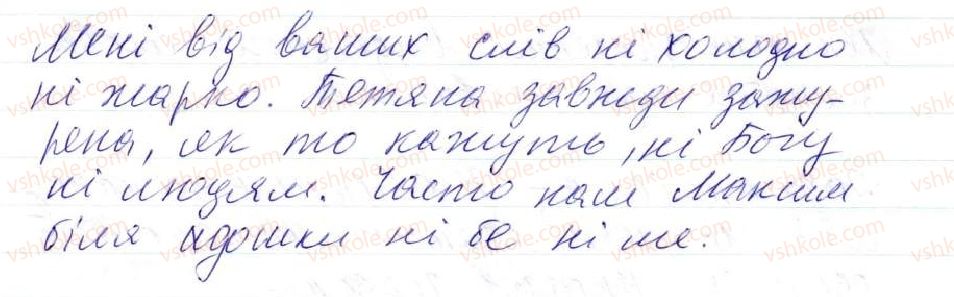 Мені від ваших слів ні холодно
ні жарко. Тетяна завжди зажу-
рена, як то кажуть, ні Богу
ні людям. Часто наш Максим
біля дошки ні бе ні ме.